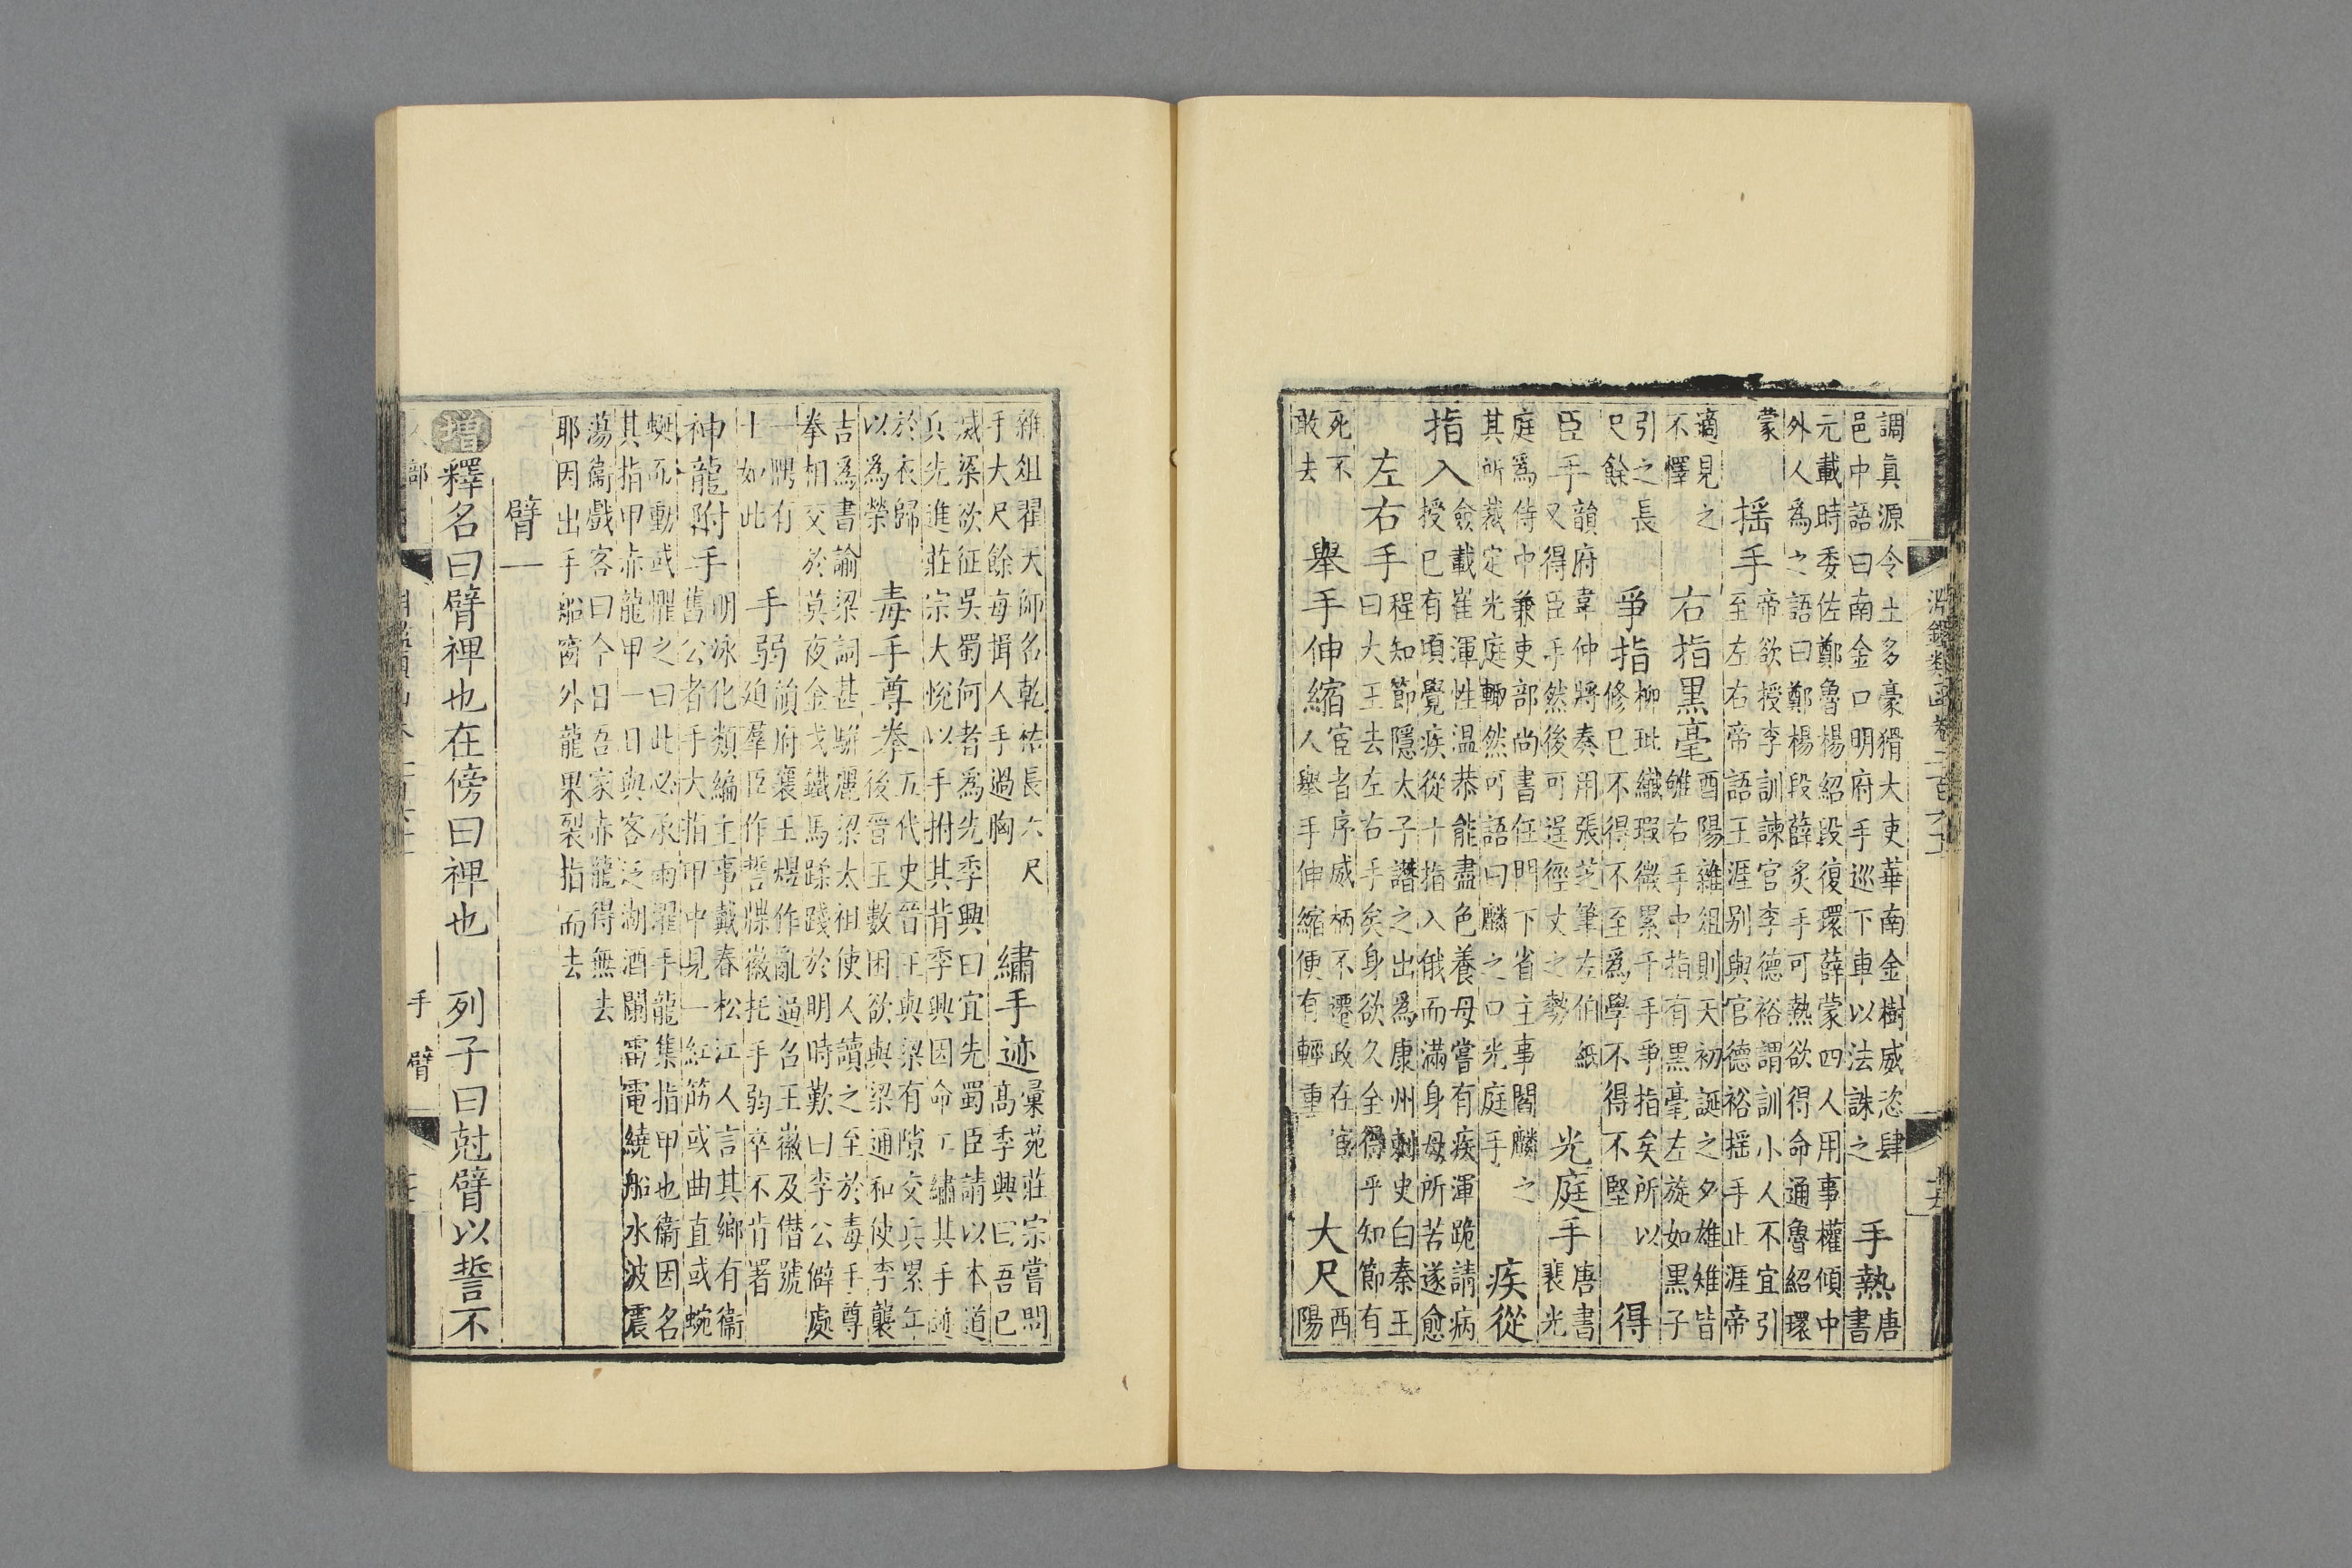 調真源令土多豪猾大吏華南金樹威恣肆
邑中語曰南金口明府手巡下車以法誅之
手熱
唐
書
元載時委佐鄭魯楊紹段復環薛蒙四人用事權傾中
外人為之語曰鄭楊段薛炙手可熱欲得命通魯紹環
蒙
搖手
帝欲授李訓諫官李德裕謂訓小人不宜引
至左右帝語王涯别與官德裕搖手止涯帝
適見之
不懌
右指黑毫
酉陽雜俎則天初誕之夕雄雉皆
雊右手中指有黑毫左旋如黑子
引之長
尺餘
爭指
柳玭纖瑕微累千手爭指矣所以
修已不得不至為學不得不堅
得
臣手
韻府韋仲將奏用張芝筆左伯紙
又得臣手然後可逞徑丈之勢
光庭手
唐書
裴光
庭為侍中兼吏部尚書任門下省主事閻麟之
其所裁定光庭輒然可語曰麟之口光庭手
疾從
指入
僉載崔渾性温恭能盡色養母嘗有疾渾跪請病
授已有頃覺疾從十指入俄而滿身母所苦遂愈
左右手
程知節隱太子譖之出為康州刺史白秦王
曰大王去左右手矣身欲久全得乎知節有
死不
敢去
舉手伸縮
宦者序威柄不遷政在宦
人舉手伸縮便有輕重
大尺
酉
陽
雜俎翟天師名乾祐長六尺
手大尺餘每揖人手過胸
繡手迹
彙苑莊宗嘗問
高季興曰吾已
滅梁欲征吳蜀何者為先季興曰宜先蜀臣請以本道
兵先進莊宗大悅以手拊其背季興因命工繡其手迹
於衣歸
以為榮
毒手尊拳
五代史晉王與梁有隙交兵累年
後晉王數困欲與梁通和使李襲
吉為書諭梁詞甚駢麗梁太祖使人讀之至於毒手尊
拳相交於莫夜金戈鐵馬蹂踐於明時歎曰李公僻處
一隅有
十如此
手弱
韻府襄王煜作亂逼召王徽及僣號
廹羣臣作誓牒徽托手弱卒不肯署
神龍附手
明泳化類編主事戴春松江人言其鄉有衞
舊公者手大指甲中見一紅筋或曲直或蜿
蜒而動或懼之曰此必承雨濯手龍集指甲也衞因名
其指甲赤龍甲一日與客泛湖酒闌雷電繞船水波震
蕩衞戲客曰今日吾家赤龍得無去
耶因出手船窗外龍果裂指而去
臂一
增釋名曰臂裨也在傍曰裨也 列子曰尅臂以誓不
淵鑑類函卷二百六十
人部
手 臂